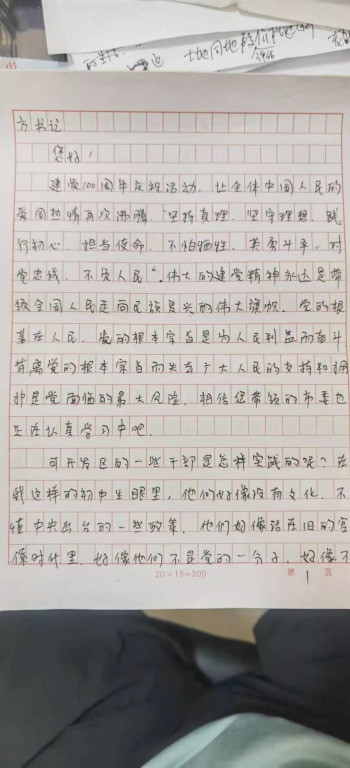 的生活
土地同地
方书记
您好！
建党100周年庆祝活动，让全体中国人民的
爱国热情再次沸腾"坚持真理、坚守理想，践
行初心、担当使命，不怕牺牲、英勇斗争，对
党忠诚、不负人民"，伟大的建党精神永远是带
领全国人民走向民族复兴的伟大旗帜，党的根
基在人民，党的根本宗旨是为人民利益而奋斗
背离党的根本宗旨而失去广大人民的支持和拥
护是党面临的最大风险，相信您带领的市委也
正在认真学习中吧。
可开发区的一些干部是怎样实践的呢？在
我这样的初中生眼里，他们好像没有文化，不
懂中央出台的一些政策，他们好像活在旧的官
僚时代里，好像他们不是党的一分子，好像不
20×15=300
第 1 页